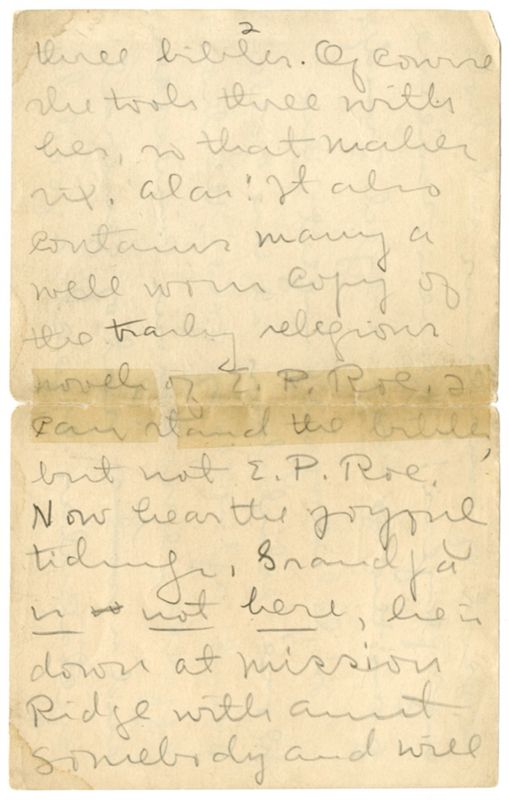 2
three bibles. Of course
she took three with
her, so that makes
six. alas! It also
contains many a
well worn copy of
the trashy religious
novels of E. P. Roe. I
can stand the bibles,
but not E. P. Roe.
Now hear the joyful
tidings, Grandpa
is not here, he is
down at mission
Ridge with aunt
somebody and will